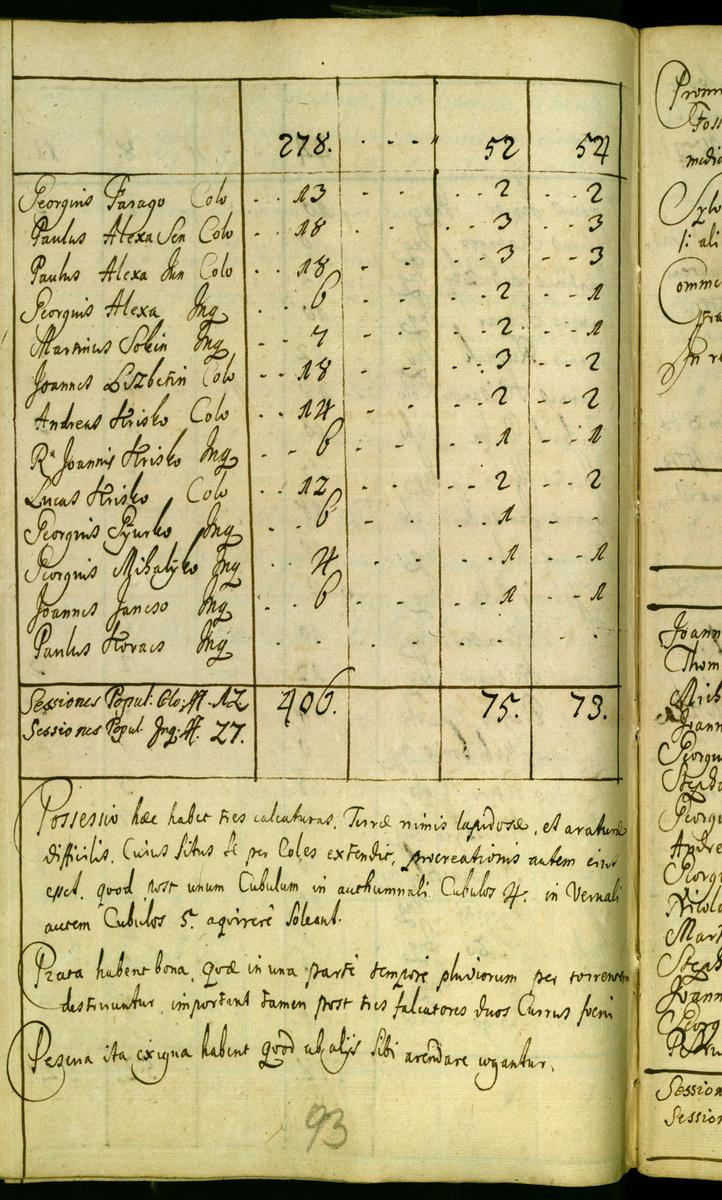 278. - - - " 52 54
Georgius Farago Colo - - 13 - - - - 2 - - 2
Paulus Alexa Sen Colo - - 18 - - - - 3 - - 3
Paulus Alexa Jun Colo - - 18 - - - - 3 - - 3
Georgius Alexa Inq - - 6 - - - - 2 - - 1
Martinus Inq - - 7 - - - - 2 - - 1
Joannes Colo - - 18 - - - - 3 - - 2
Andreas Hrisko Colo - - 14 - - - - 2 - - 2
Ra Joannis Hrisko Inq - - 6 - - - - 1 - - 1
Lucas Hrisko Colo - - 12 - - - - 2 - - 2
Georgius Gyurko Inq - - 6 - - - - 1 - -
Georgius Mihalyko Inq - - 4 - - - - 1 - - 1
Joannes Jancso Inq - - 6 - - - - 1 - - 1
Paulus Kovacs Inq - - - - - -
Sessiones Popul: Colo: 12 406. 75. 73.
Sessiones Popul Inq: 27.
Possessio hæc habet tres calcaturas. Terræ nimis lapidosæ, et araturæ
difficilis. Cuius Situs se per Coles extendit, procreationis autem eius
esset, quod post unum Cubulum in authumnali Cubulos 4. in Vernali
autem Cubulos 5. aqvirere Soleant.
Prata habent bona, quæ in una parti tempore pluviorum per torrentem
destruuntur, important tamen post tres falcatores duos Currus foeni
Pascua ita exigua habent quod ab alijs Sibi arendare cogantur.
93
Joann
Thom
Mich
Joann
Georgi
Steph
Georgi
Andre
Georgi
Nicol
Mart
Steph
Joann
Georg
Session
Session